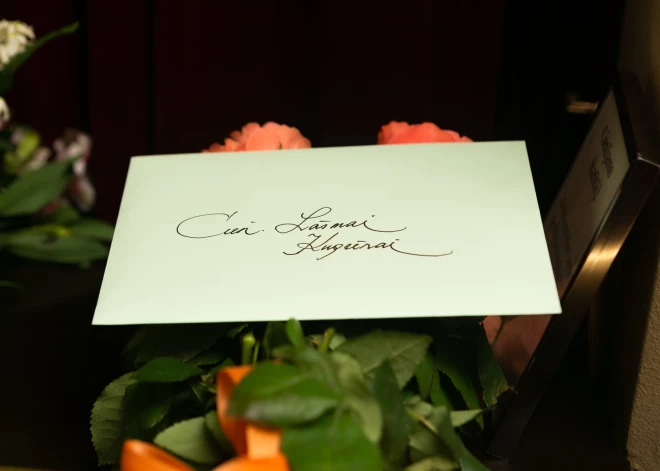 Cien. Lāsmai
Kugrēnai